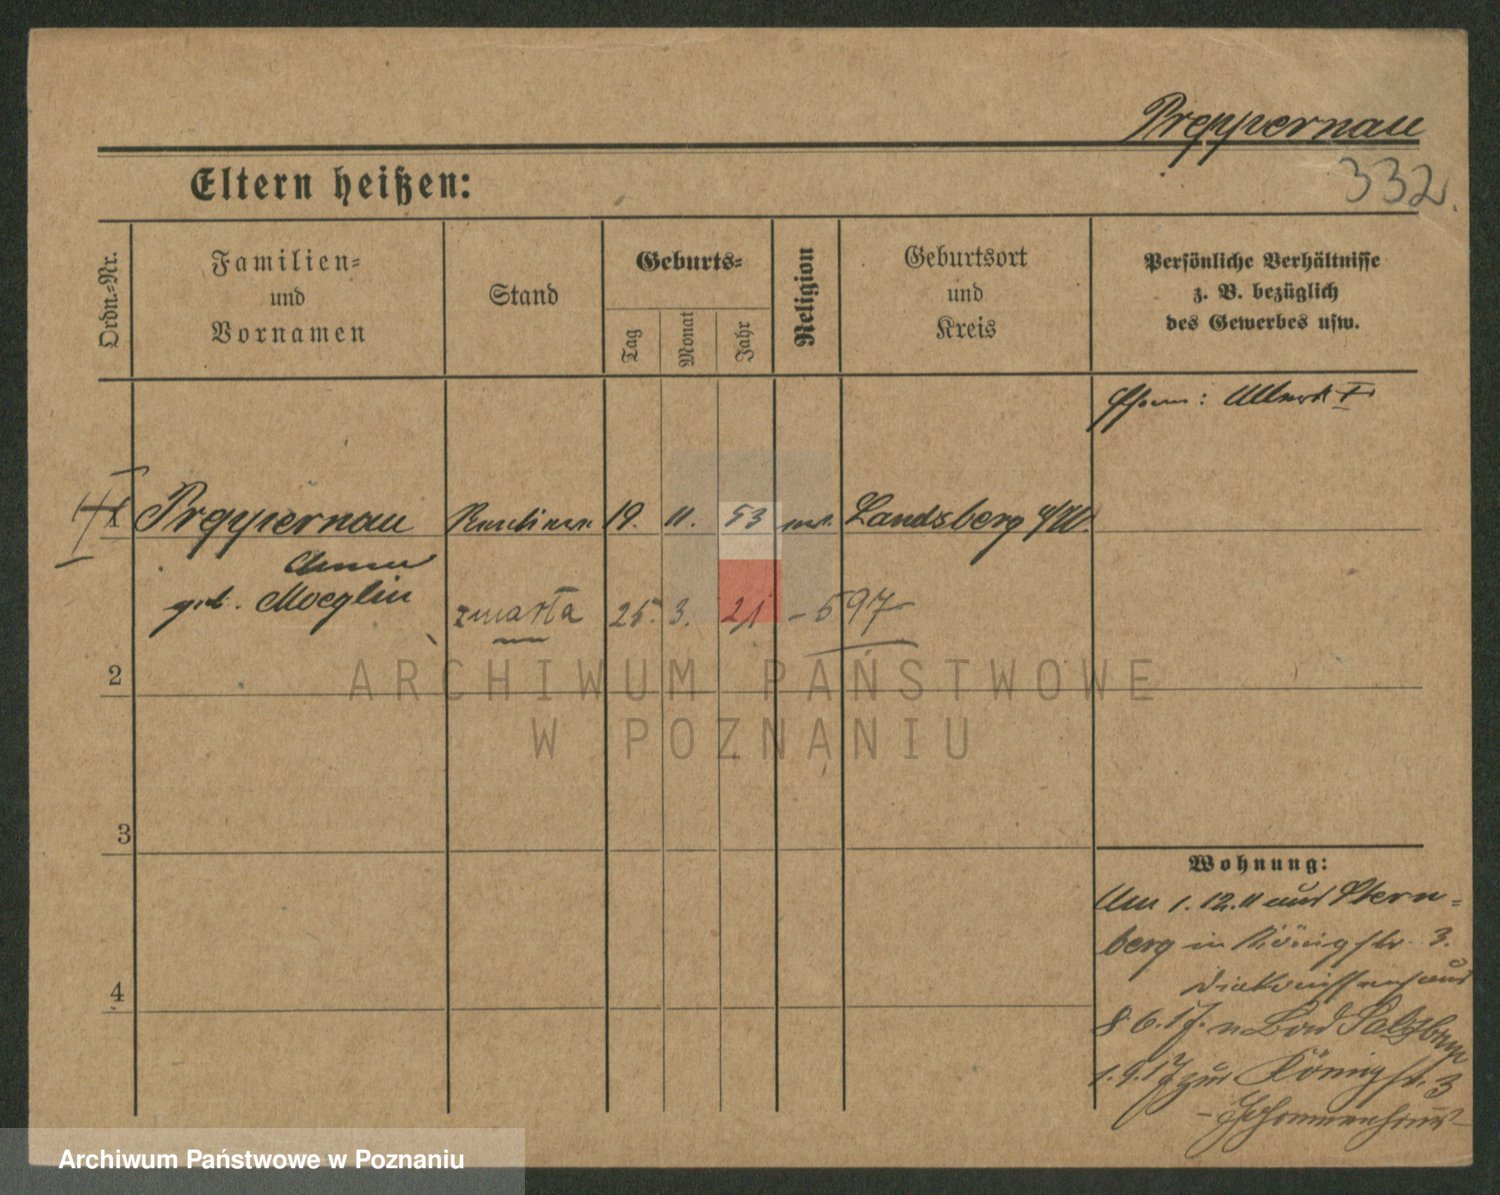 Preppernau
332.
Eltern heißen:
Ordn.-Nr.
Familien-
und
Vornamen
Stand
Geburts-
Tag
Monat
Jahr
Religion
Geburtsort
und
Kreis
Persönliche Verhältnisse
z. B. bezüglich
des Gewerbes usw.
Ehem: Albert †
1
Preppernau
Rentiere
19.
11.
53
ev.
Landsberg a/W.
Anna
geb. Moeglin
zmarła
25.
3.
21
- 597
2
ARCHIWUM PAŃSTWOWE
W POZNANIU
3
Wohnung:
Am 1.12.11 aus Stern-
berg in Königstr. 3.
Diakonissenhaus
8.6.17. n. Bad Salzbrunn
1.9.17 zur Königstr. 3
- Johannenhaus -
4
Archiwum Państwowe w Poznaniu